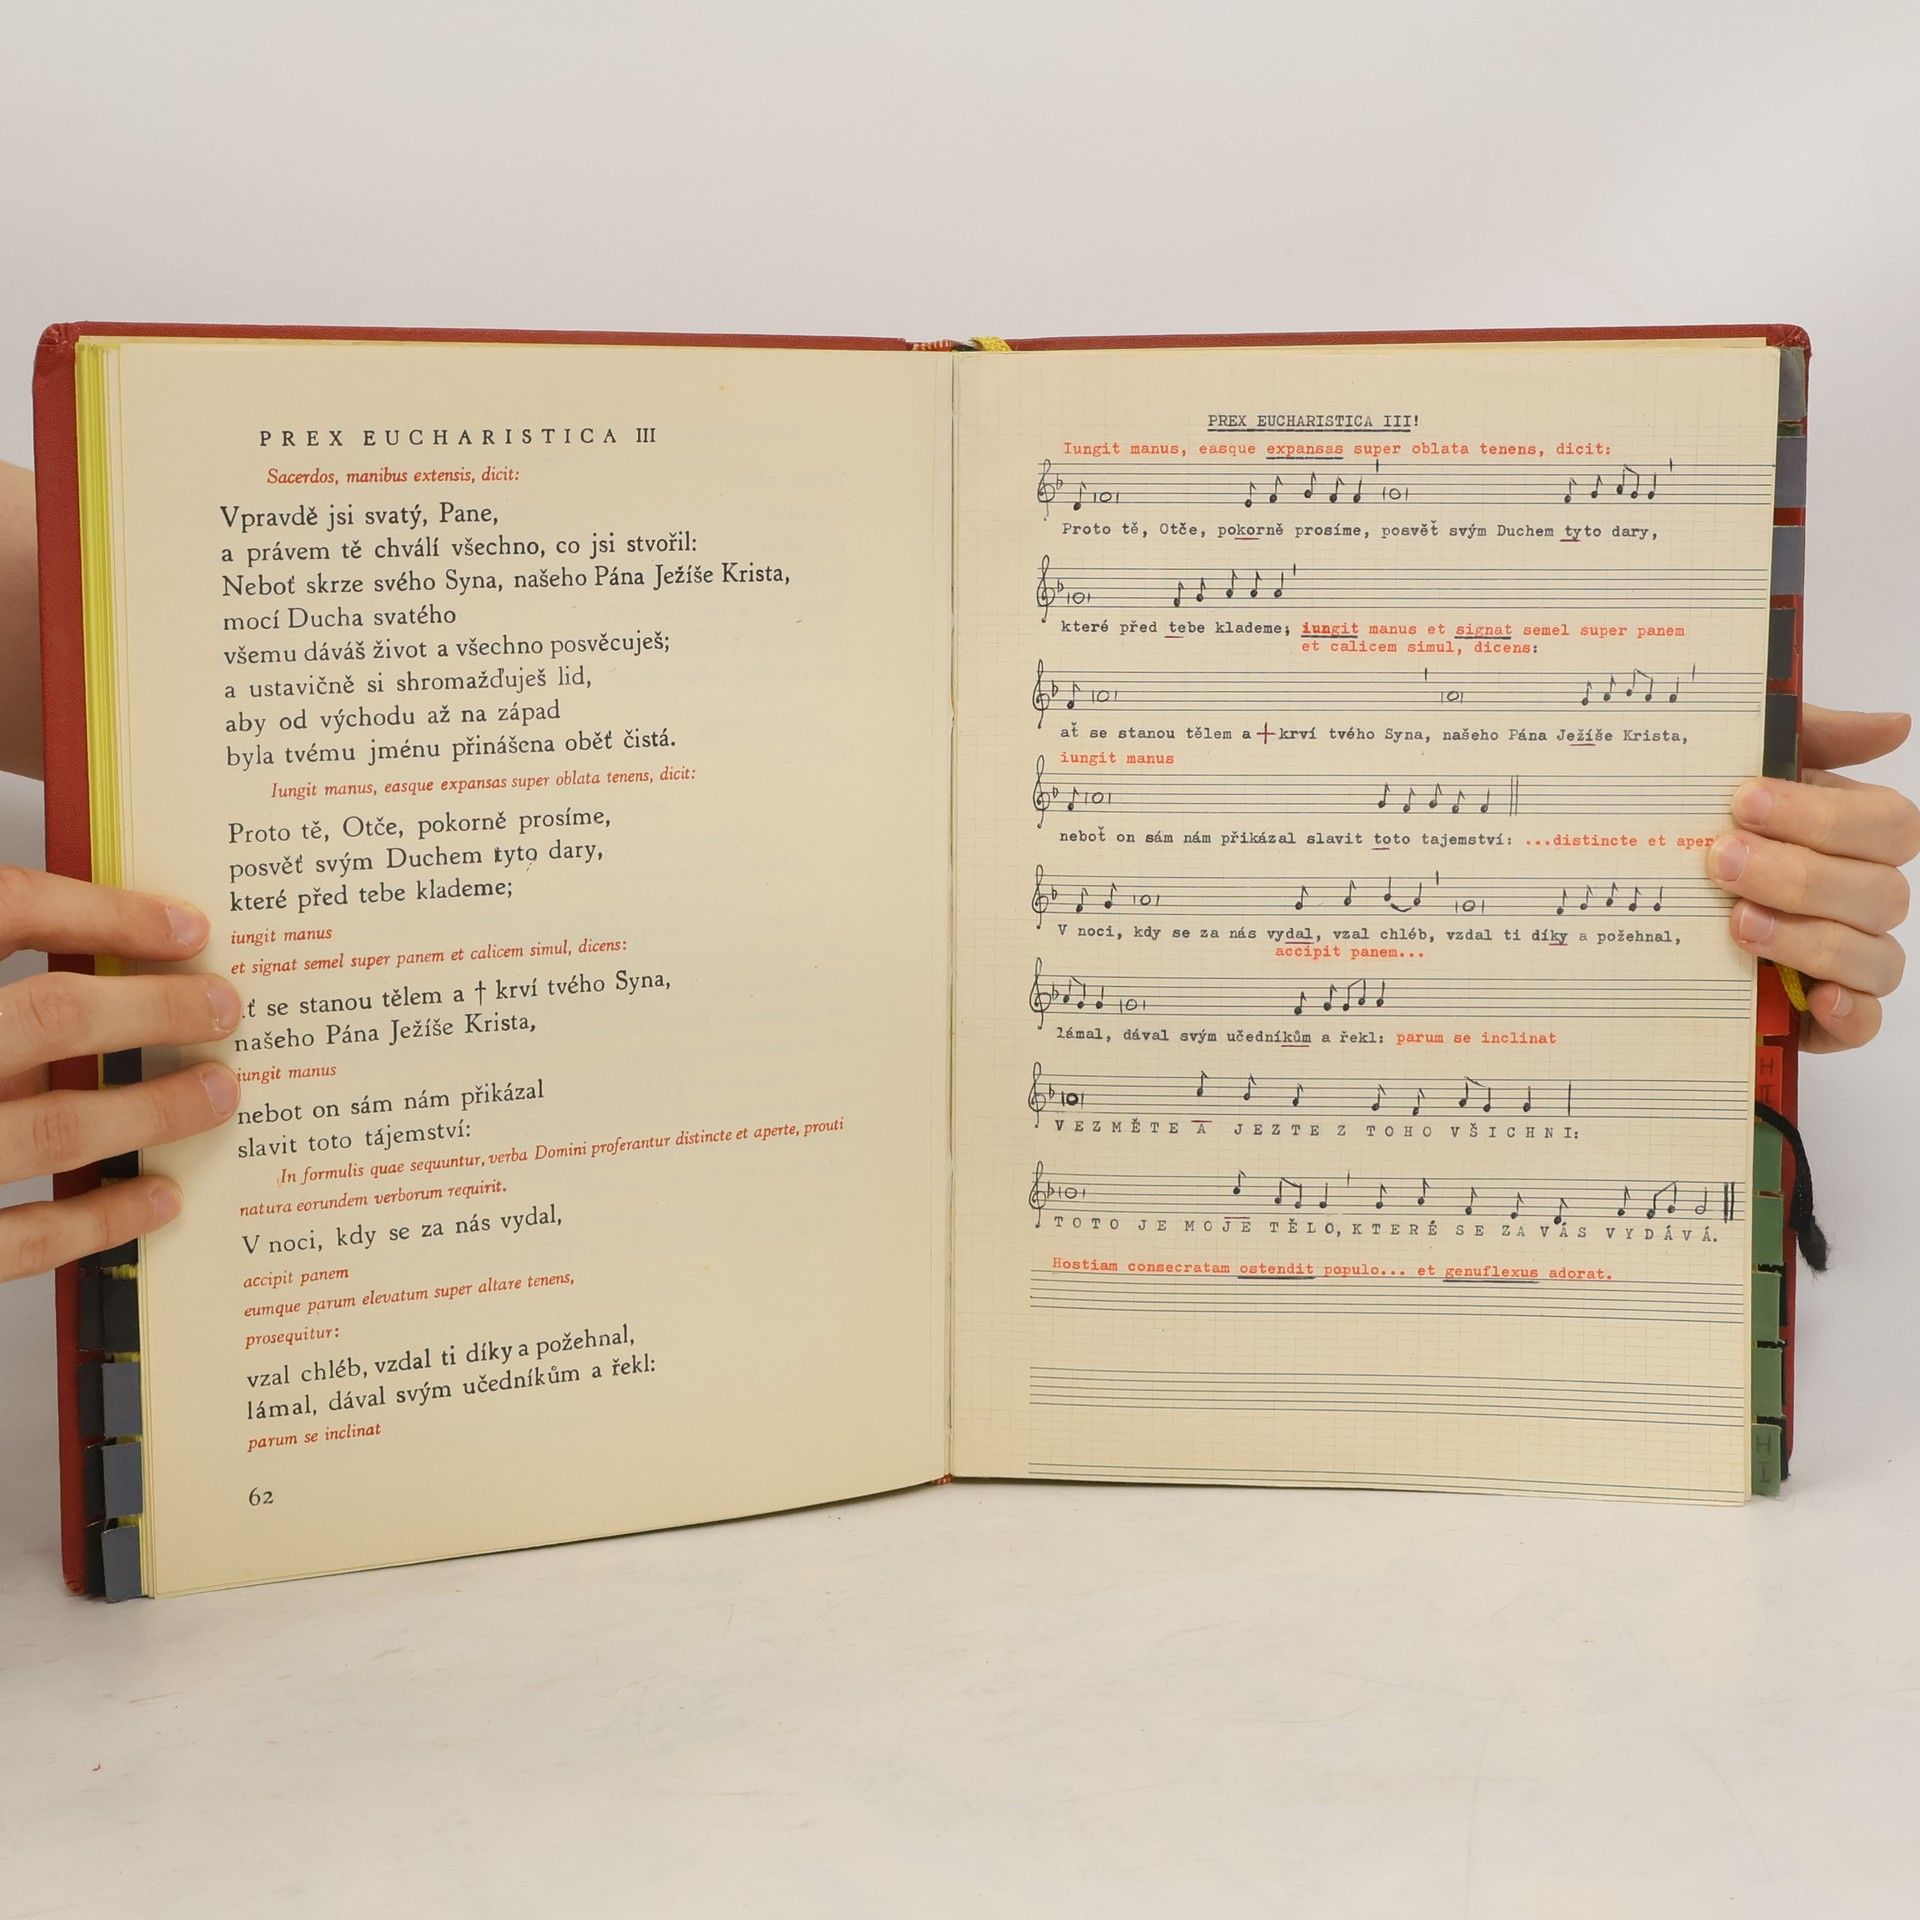 PREX EUCHARISTICA III
Sacerdos, manibus extensis, dicit:
Vpravdě jsi svatý, Pane,
a právem tě chválí všechno, co jsi stvořil:
Neboť skrze svého Syna, našeho Pána Ježíše Krista,
mocí Ducha svatého
všemu dáváš život a všechno posvěcuješ;
a ustavičně si shromažďuješ lid,
aby od východu až na západ
byla tvému jménu přinášena oběť čistá.
Iungit manus, easque expansas super oblata tenens, dicit:
Proto tě, Otče, pokorně prosíme,
posvěť svým Duchem tyto dary,
které před tebe klademe;
iungit manus
et signat semel super panem et calicem simul, dicens:
ť se stanou tělem a † krví tvého Syna,
našeho Pána Ježíše Krista,
iungit manus
nebot on sám nám přikázal
slavit toto tájemství:
In formulis quae sequuntur, verba Domini proferantur distincte et aperte, prouti
natura eorundem verborum requirit.
V noci, kdy se za nás vydal,
accipit panem
eumque parum elevatum super altare tenens,
prosequitur:
vzal chléb, vzdal ti díky a požehnal,
lámal, dával svým učedníkům a řekl:
parum se inclinat
62
PREX EUCHARISTICA III!
Iungit manus, easque expansas super oblata tenens, dicit:
Proto tě, Otče, pokorně prosíme, posvěť svým Duchem tyto dary,
které před tebe klademe; iungit manus et signat semel super panem
et calicem simul, dicens:
ať se stanou tělem a + krví tvého Syna, našeho Pána Ježíše Krista,
iungit manus
neboť on sám nám přikázal slavit toto tajemství: ...distincte et aper
V noci, kdy se za nás vydal, vzal chléb, vzdal ti díky a požehnal,
accipit panem...
lámal, dával svým učedníkům a řekl: parum se inclinat
VEZMĚTE A JEZTE Z TOHO VŠICHNI:
TOTO JE MOJE TĚLO, KTERÉ SE ZA VÁS VYDÁVÁ.
Hostiam consecratam ostendit populo... et genuflexus adorat.